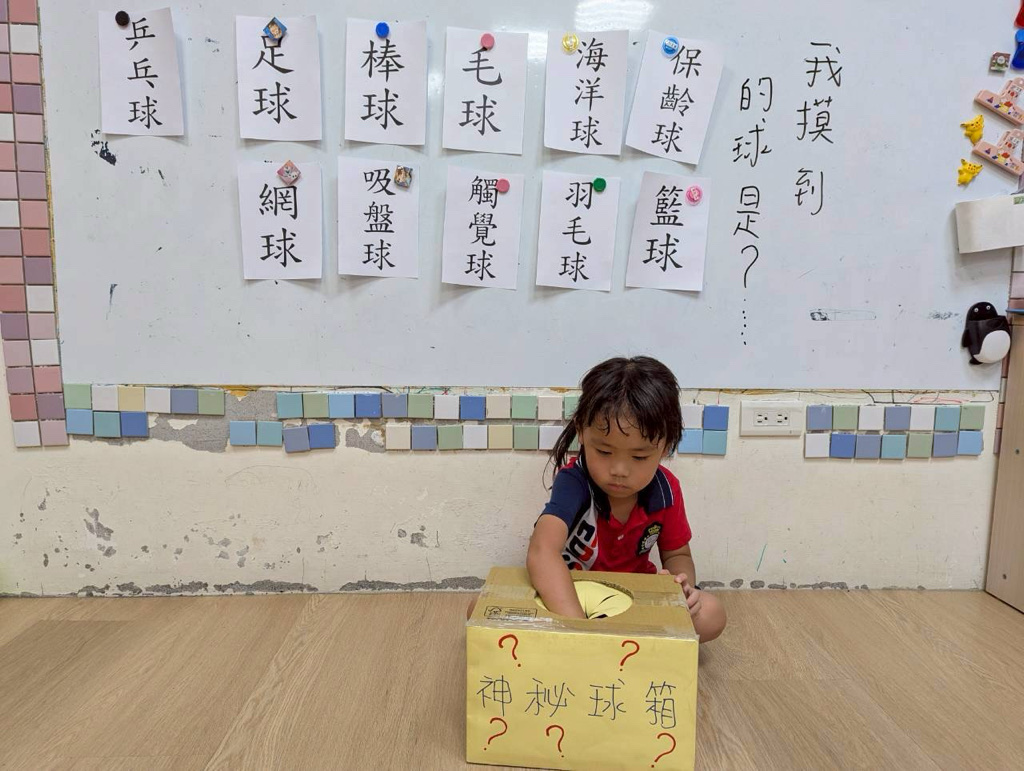 我摸到
的球是?……
乒乓球
足球
棒球
毛球
海洋球
保齡球
網球
吸盤球
觸覺球
羽毛球
籃球
? ?
神秘球箱
? ? ?